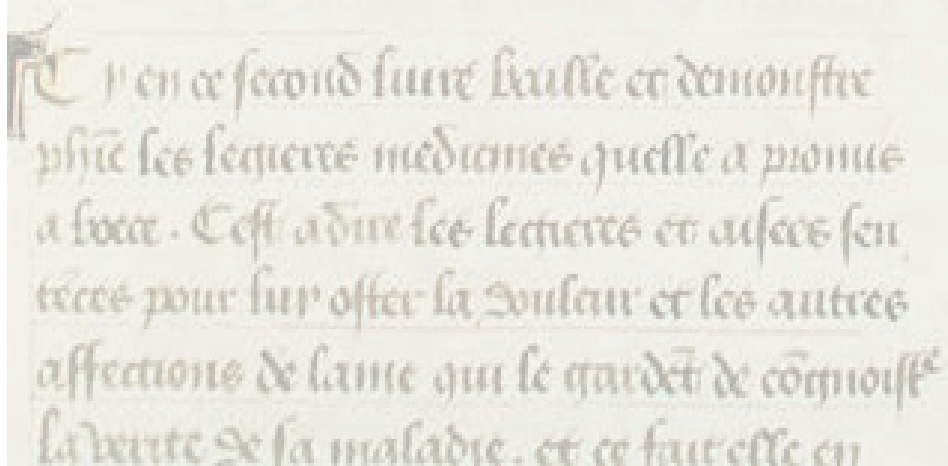 Cy en ce second liure baille et demonstre
phie les legieres medicines quelle a promis
a boece. Cest adire les legieres et aisees sen
tẽces pour luy oster la douleur et les autres
affections de lame qui le gardẽt de cõgnoistre
la verite de sa maladie. et ce fait elle en